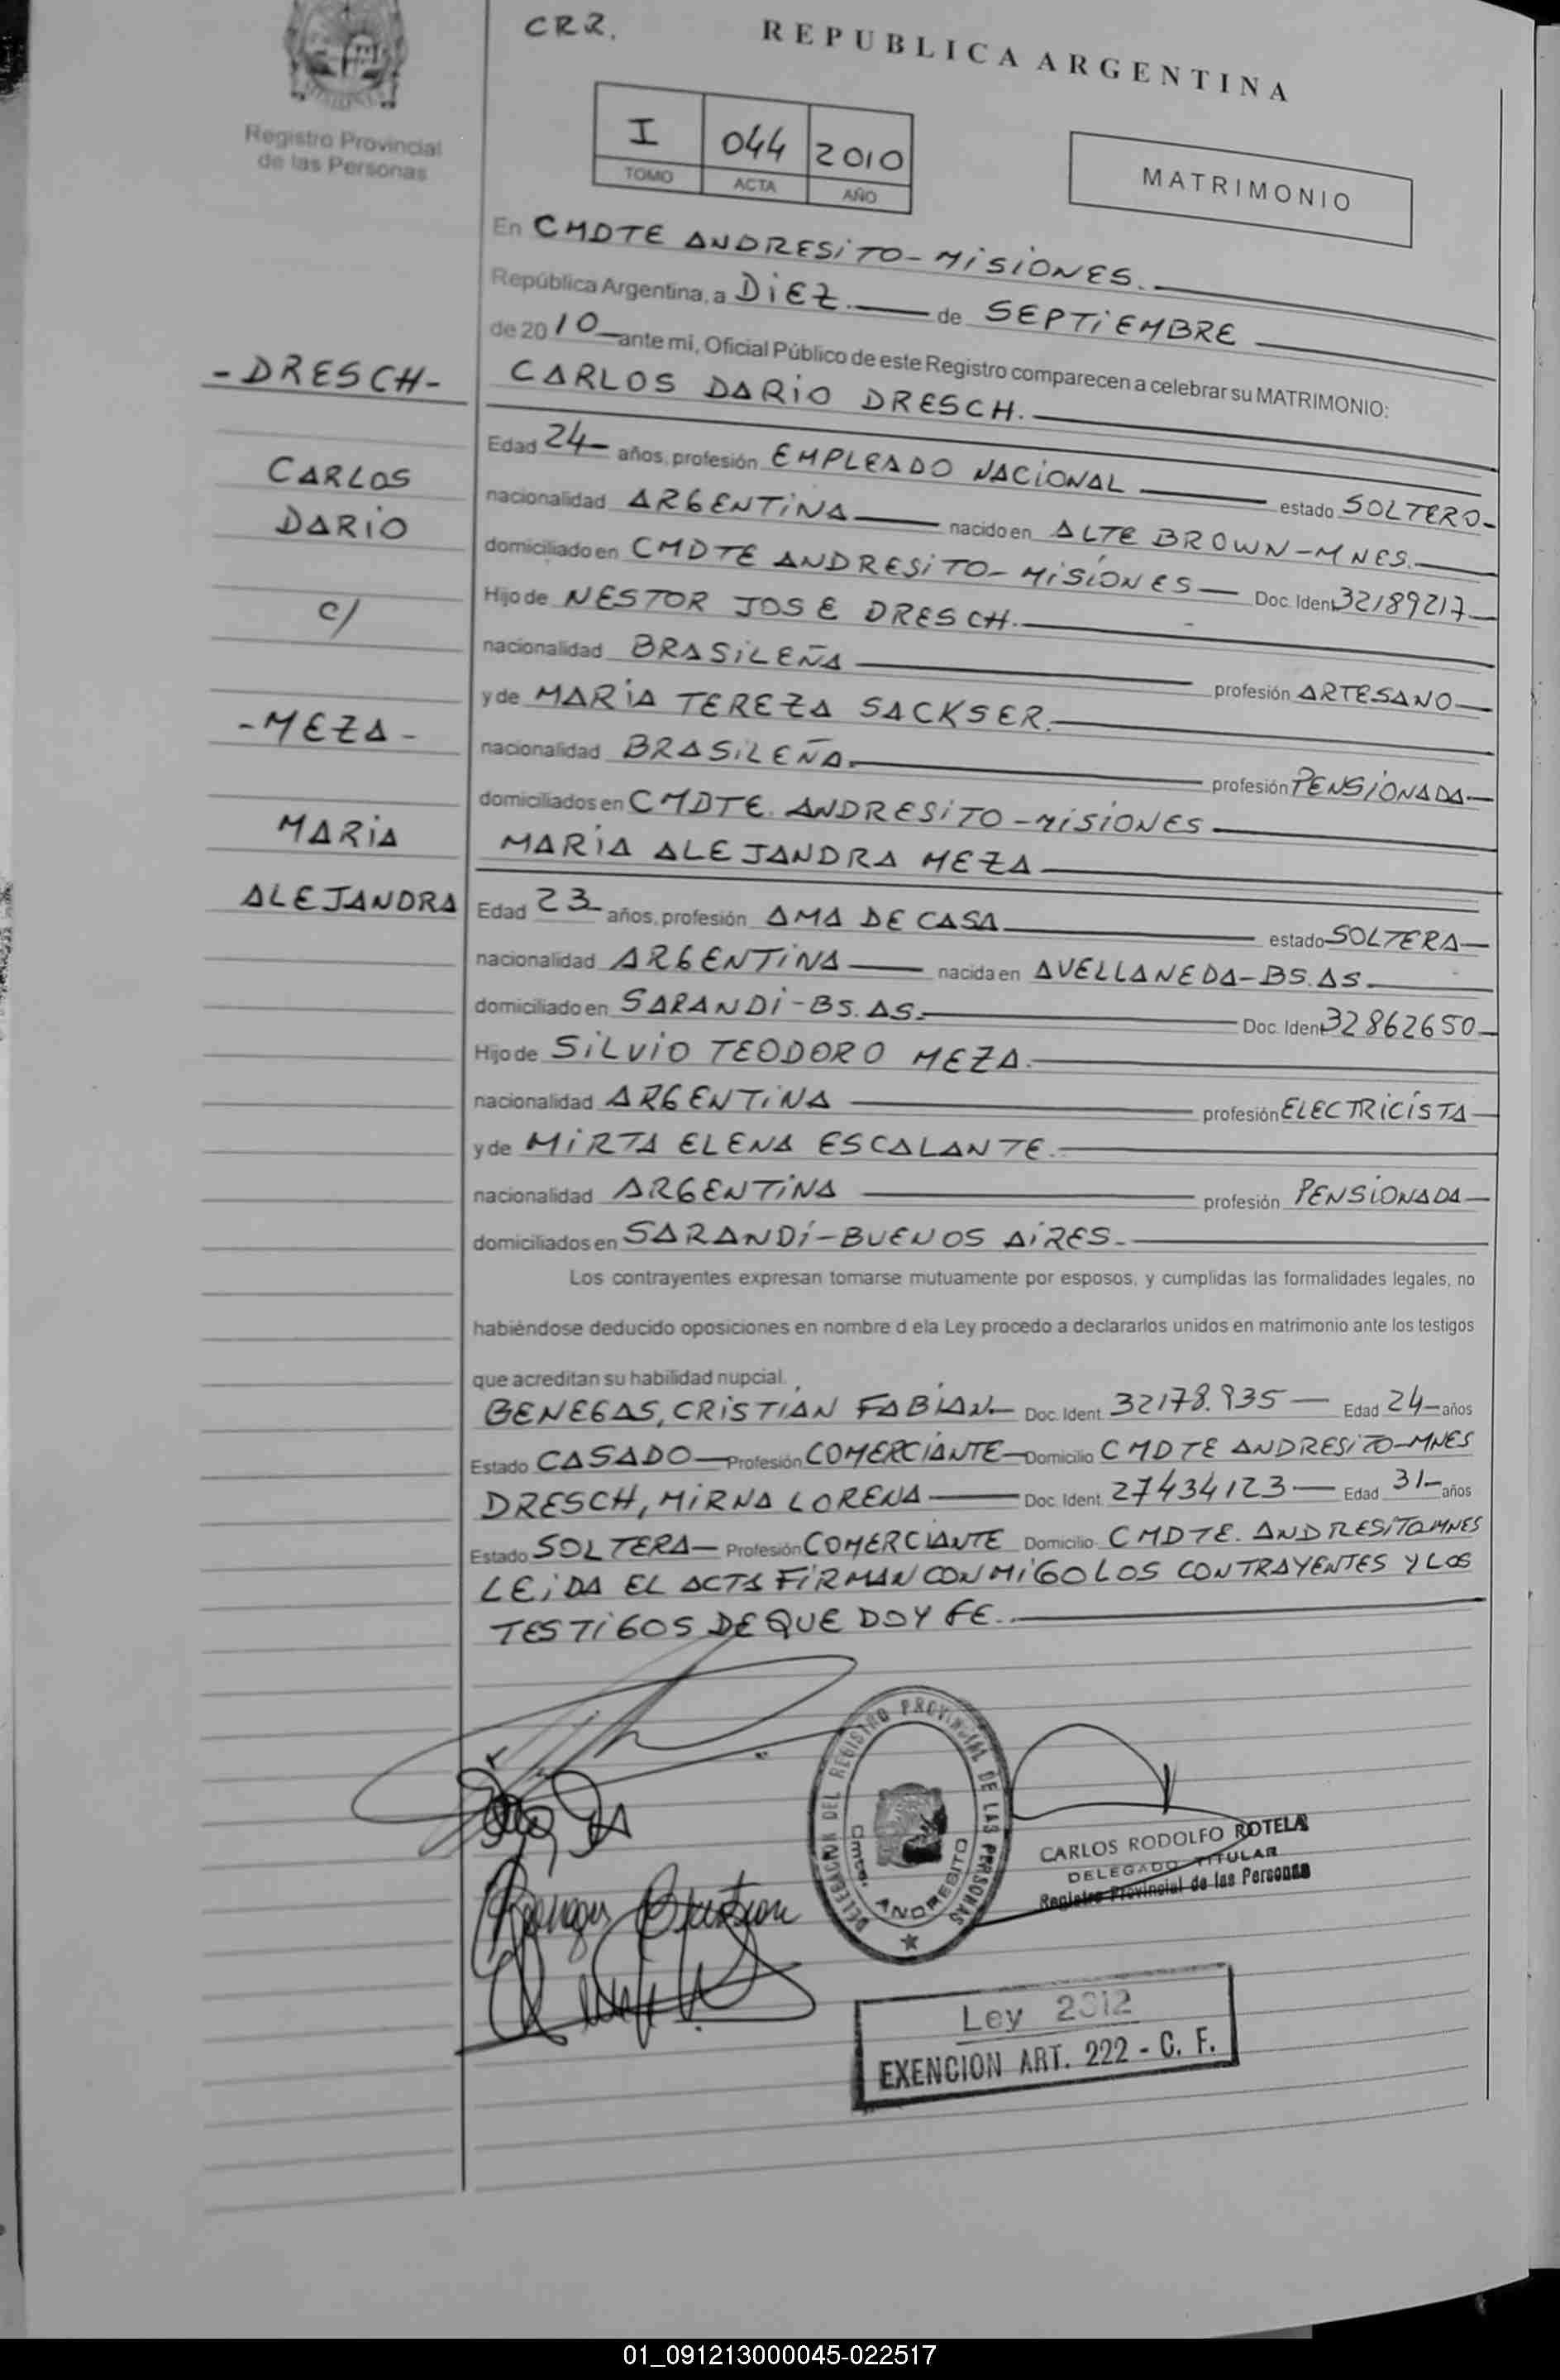 CRR.
REPUBLICA ARGENTINA
MISIONES
Registro Provincial
de las Personas
I 044 2010
TOMO ACTA AÑO
MATRIMONIO
En CMDTE ANDRESiTO - MiSiONES.
República Argentina, a DiEZ. de SEPTiEMBRE
de 2010 ante mi, Oficial Público de este Registro comparecen a celebrar su MATRIMONIO:
- DRESCH -
CARLOS DARiO DRESCH.
Edad 24 años, profesión EMPLEADO NACiONAL estado SOLTERO
CARLOS
nacionalidad ARGENTiNA nacido en ALTE BROWN - MNES.
DARiO
domiciliado en CMDTE ANDRESiTO - MiSiONES Doc. Ident 32189217
c/
Hijo de NESTOR JOSE DRESCH.
nacionalidad BRASiLEÑA profesión ARTESANO
y de MARiA TEREZA SACKSER.
- MEZA -
nacionalidad BRASiLEÑA. profesión PENSiONADA
domiciliados en CMDTE. ANDRESiTO - MiSiONES
MARiA
MARiA ALEJANDRA MEZA
ALEJANDRA
Edad 23 años, profesión AMA DE CASA estado SOLTERA
nacionalidad ARGENTiNA nacida en AVELLANEDA - BS. AS.
domiciliado en SARANDi - BS. AS. Doc. Ident 32862650
Hijo de SiLViO TEODORO MEZA.
nacionalidad ARGENTiNA profesión ELECTRiCiSTA
y de MiRTA ELENA ESCALANTE.
nacionalidad ARGENTiNA profesión PENSiONADA
domiciliados en SARANDí - BUENOS AiRES.
Los contrayentes expresan tomarse mutuamente por esposos, y cumplidas las formalidades legales, no
habiéndose deducido oposiciones en nombre d ela Ley procedo a declararlos unidos en matrimonio ante los testigos
que acreditan su habilidad nupcial.
BENEGAS, CRiSTiAN FABiAN Doc. Ident. 32178.935 Edad 24 años
Estado CASADO Profesión COMERCiANTE Domicilio CMDTE ANDRESiTO - MNES
DRESCH, MiRNA LORENA Doc. Ident. 27434123 Edad 31 años
Estado SOLTERA Profesión COMERCiANTE Domicilio CMDTE. ANDRESiTO MNES
LEiDA EL ACTA FiRMAN CONMiGO LOS CONTRAYENTES Y LOS
TESTiGOS DE QUE DOY FE.
DELEGACION DEL REGISTRO PROVINCIAL DE LAS PERSONAS
Cmte. ANDRESITO
CARLOS RODOLFO ROTELA
DELEGADO TITULAR
Registro Provincial de las Personas
Benegas Cristian
Ley 2312
EXENCION ART. 222 - C. F.
01_091213000045-022517